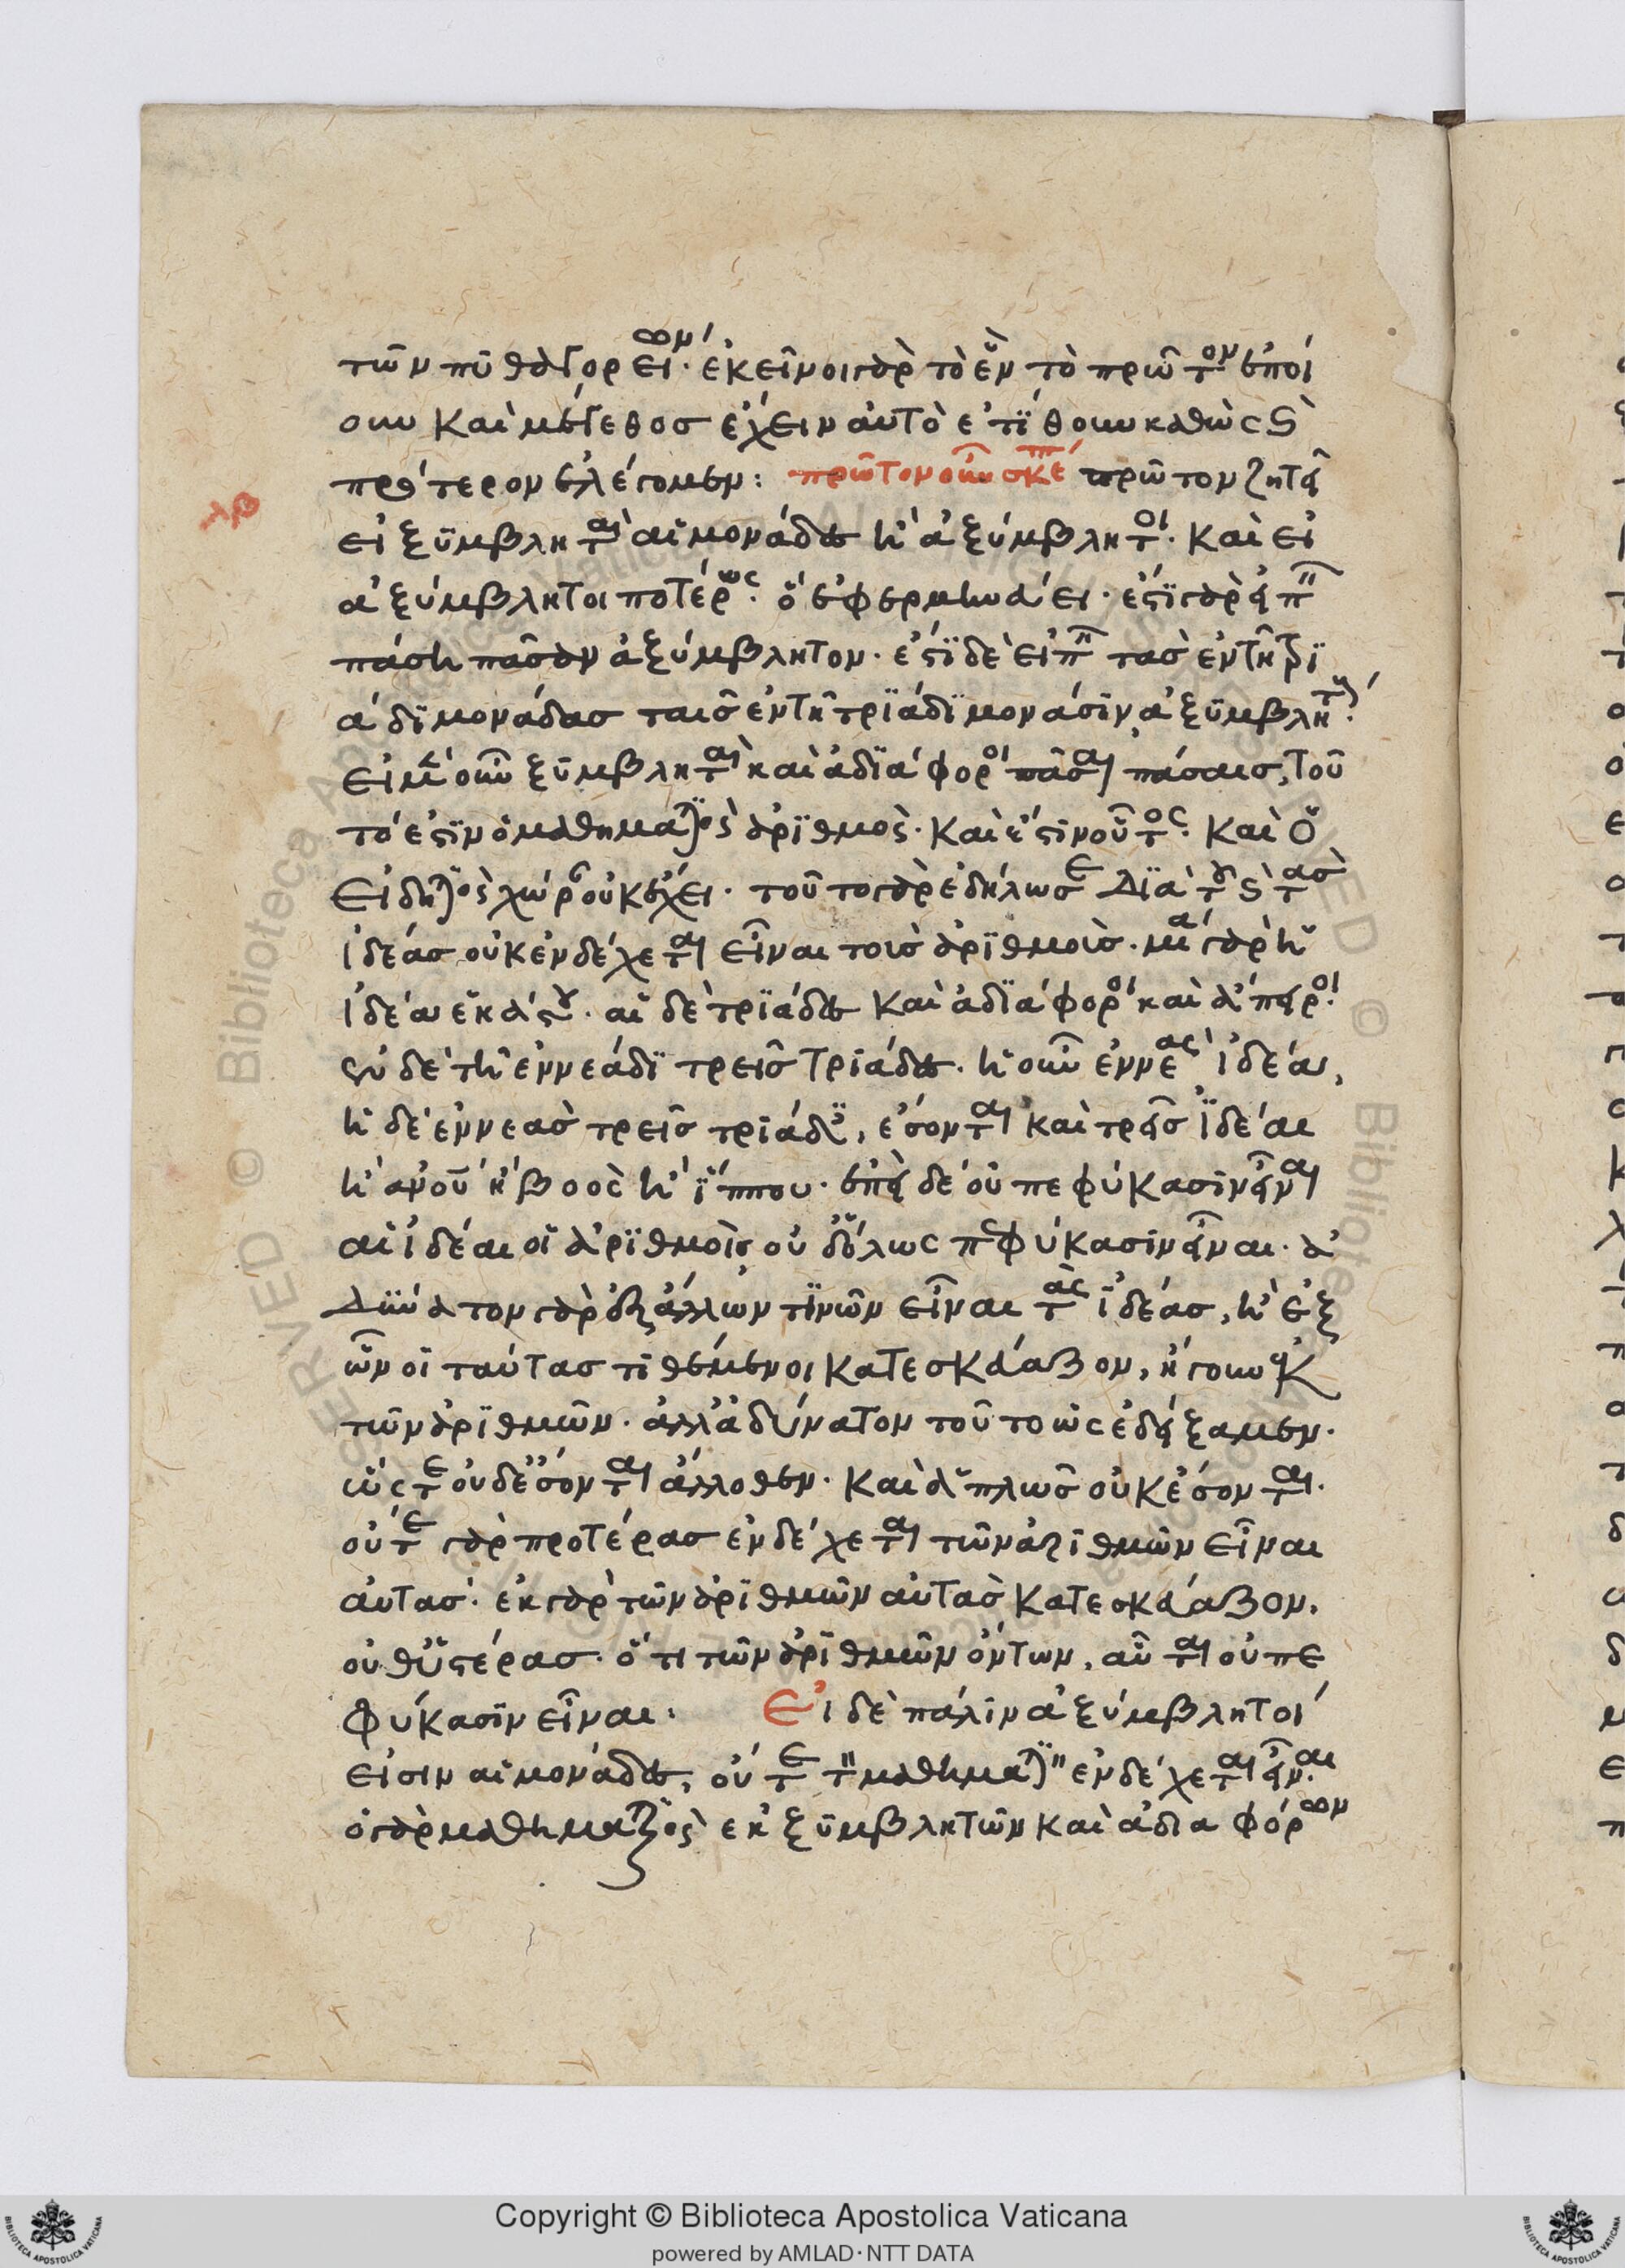 τῶν πυθαγορείων· ἐκεῖνοι γὰρ τὸ ἓν τὸ πρῶτον ἐποί
ουν καὶ μέγεθος ἔχειν αὐτὸ ἐτίθουν καθὼς καὶ
πρότερον ἐλέγομεν: πρῶτον οὖν σκεπτέ πρῶτον ζητεῖ
λβ
εἰ ξύμβληται αἱ μονάδες ἢ ἀξύμβλητοι. καὶ εἰ
ἀξύμβλητοι ποτέρως· ὃ ἐφερμηνεύει· ἔστι γὰρ εἰπεῖν
πάση πᾶσαν ἀξύμβλητον· ἔστι δὲ εἰπεῖν τὰς ἐν τῆ τρι
άδι μονάδας ταῖς ἐν τῆ τριάδι μονάσιν ἀξυμβλήτους·
εἰ μὲν οὖν ξύμβληται καὶ ἀδιάφοροι πᾶσαι πάσαις, τοῦ
τό ἐστιν ὁ μαθηματικὸς ἀριθμός. καὶ ἔστιν οὗτος. καὶ ὁ
εἰδητικὸς χώραν οὐκ ἔχει· τοῦτο γὰρ ἐδήλωσε διὰ τοῦ καὶ τὰς
ἰδέας οὐκ ἐνδέχεται εἶναι τοὺς ἀριθμούς. μία γὰρ ἡ
ἰδέα ἑκάστου. αἱ δὲ τριάδες καὶ ἀδιάφοροι καὶ ἄπειροι.
ἐν δὲ τῆ ἐννεάδι τρεῖς τριάδες. ἡ οὖν ἐννεὰς ἰδέα,
ἡ δὲ ἐννεὰς τρεῖς τριάδες, ἔσονται καὶ τρεῖς ἰδέαι
ἢ ἀνοῦ ἢ βοὸς ἢ ἵππου. ἐπεὶ δὲ οὐ πεφύκασιν εἶναι
αἱ ἰδέαι οἱ ἀριθμοὶ, οὐδ' ὅλως πεφύκασιν εἶναι. ἀ
δύνατον γὰρ ἐξ ἄλλων τινῶν εἶναι τὰς ἰδέας, ἢ ἐξ
ὧν οἱ ταύτας τιθέμενοι κατεσκεύαζον, ἤγουν ἐκ
τῶν ἀριθμῶν. ἀλλ' ἀδύνατον τοῦτο ὡς ἐδείξαμεν.
ὥστε οὐδ' ἔσονται ἄλλοθεν. καὶ ἁπλῶς οὐκ ἔσονται.
οὔτε γὰρ προτέρας ἐνδέχεται τῶν ἀριθμῶν εἶναι
αὐτάς· ἐκ γὰρ τῶν ἀριθμῶν αὐτὰς κατεσκεύαζον.
οὐθ' ὑστέρας. ὅτι τῶν ἀριθμῶν ὄντων, αὗται οὐ πε
φύκασιν εἶναι: Εἰ δὲ πάλιν ἀξύμβλητοί
εἰσιν αἱ μονάδες, οὔτε τὸν μαθηματικὸν ἐνδέχεται εἶναι
ὁ γὰρ μαθηματικὸς ἐκ ξυμβλητῶν καὶ ἀδιαφόρων
© Biblioteca Apostolica Vaticana
Copyright © Biblioteca Apostolica Vaticana
powered by AMLAD·NTT DATA